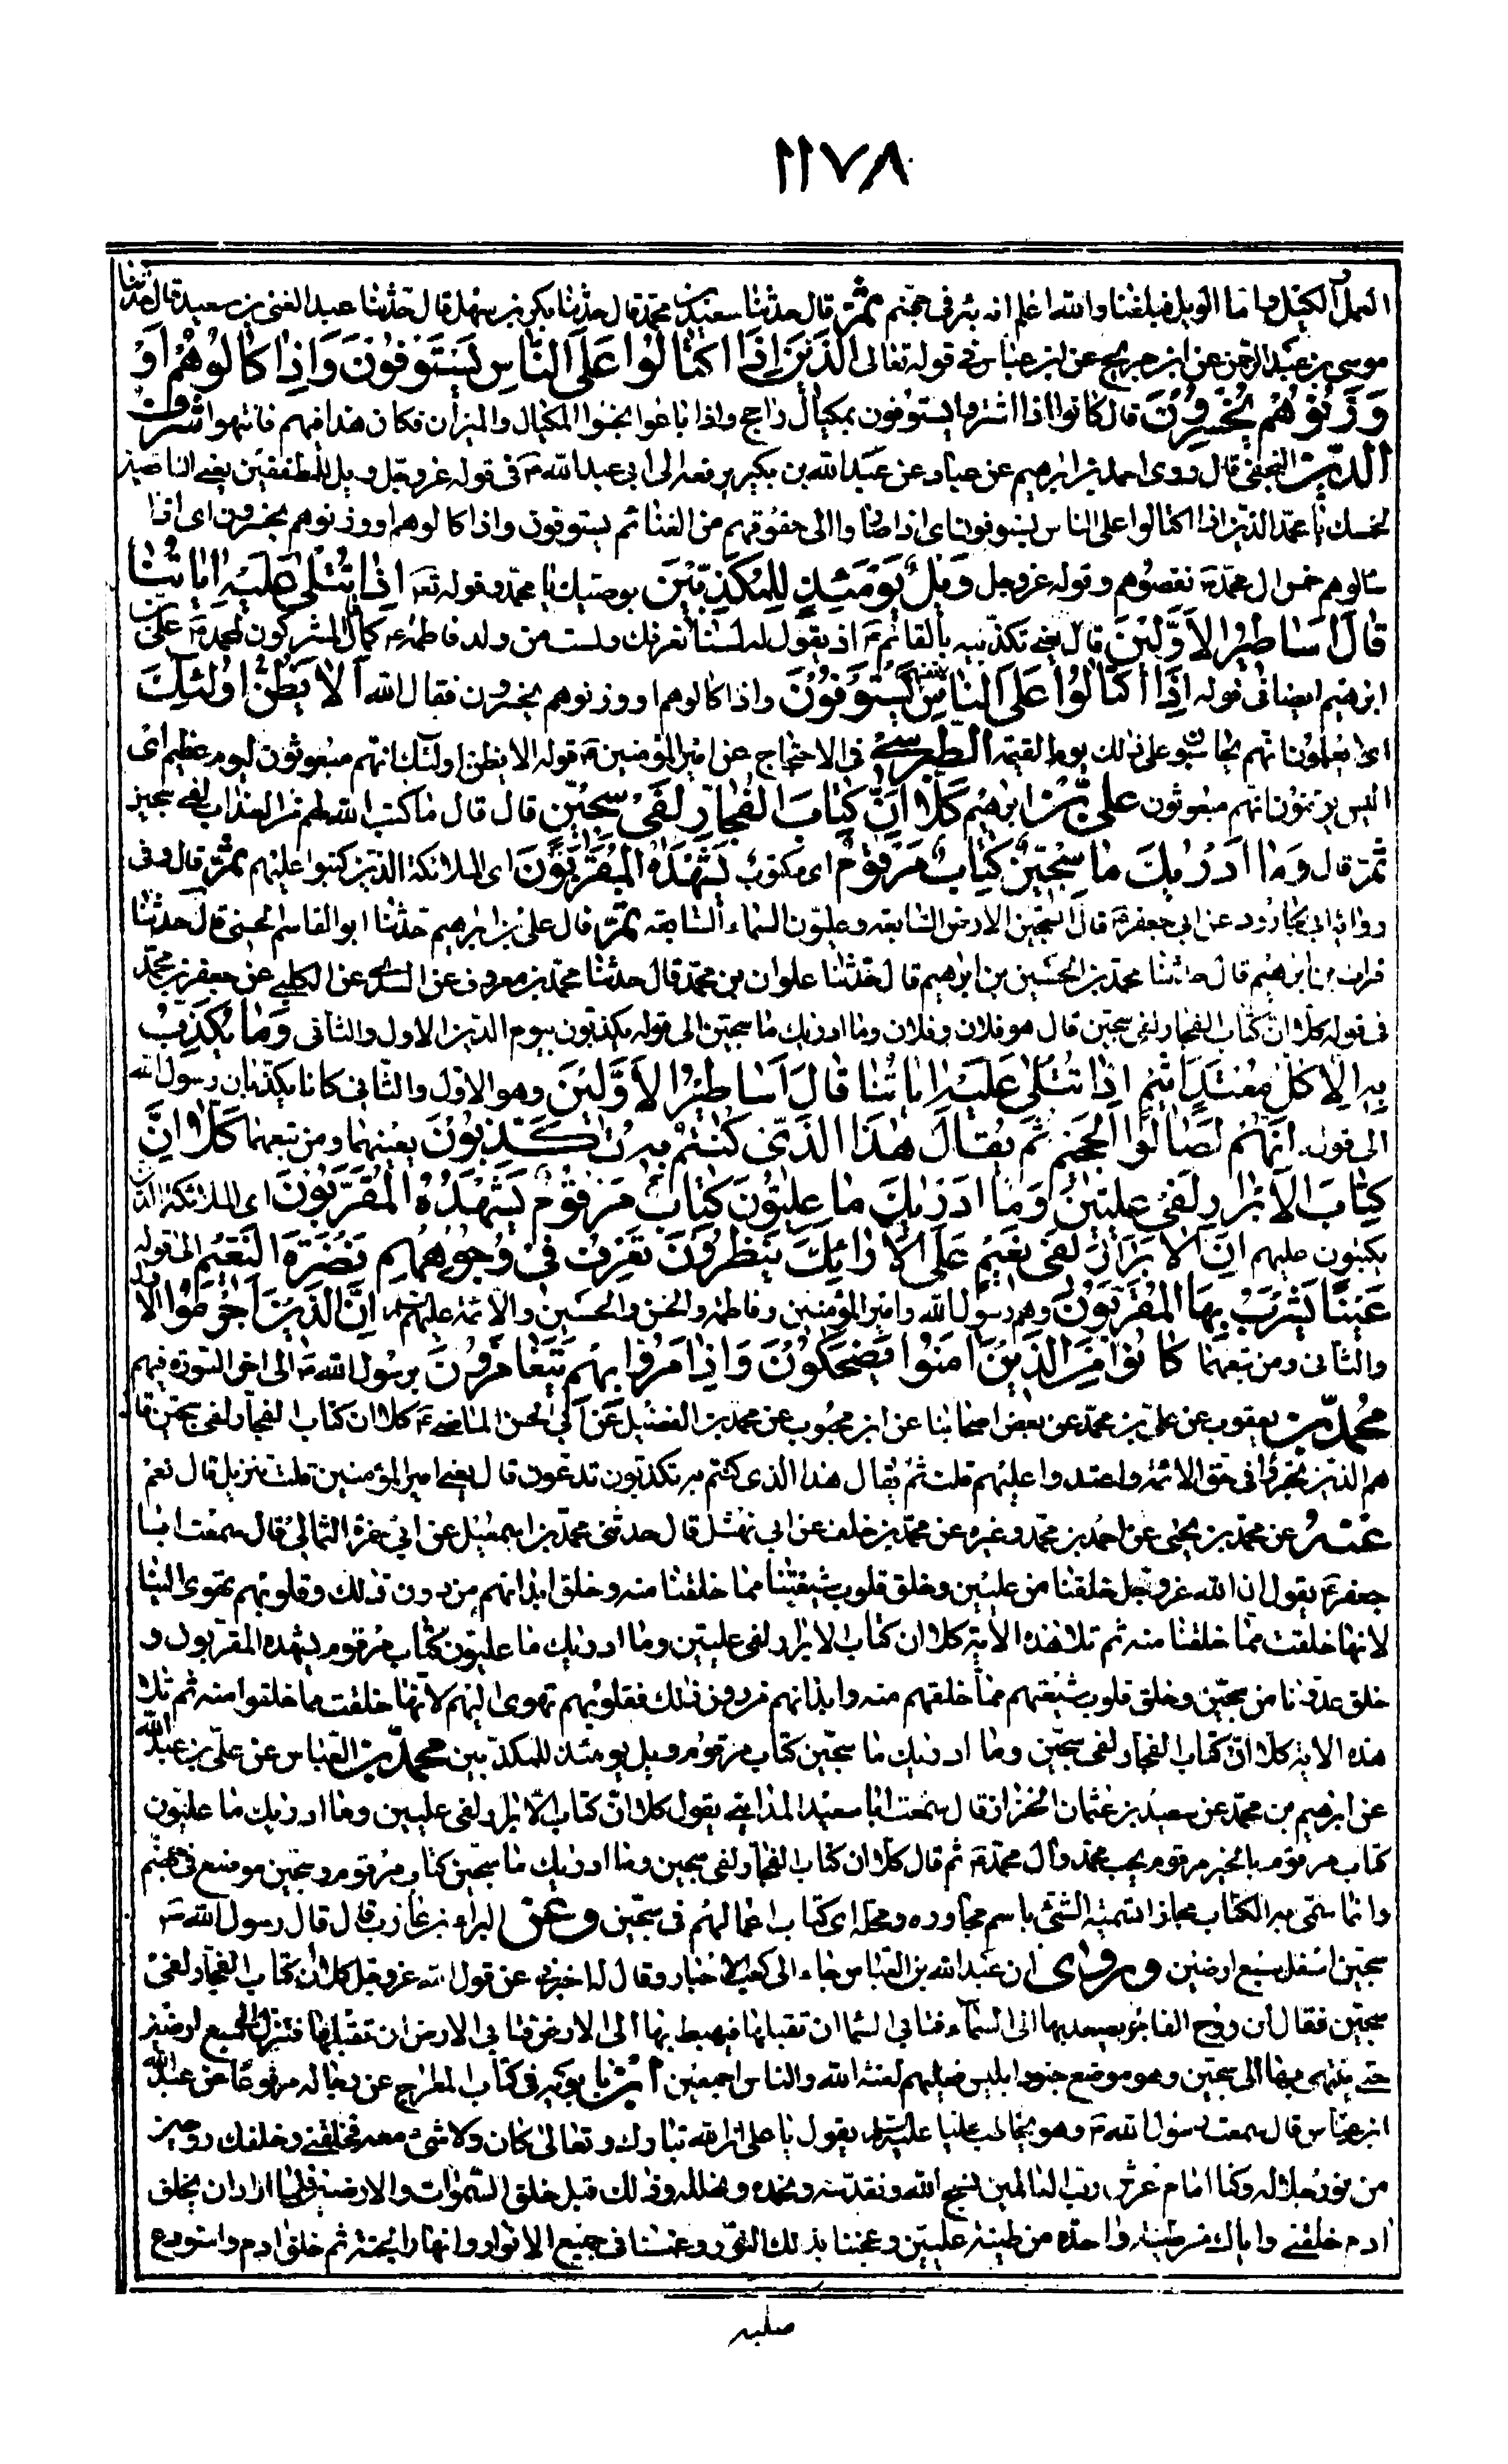 ١١٧٨
العمل الكيل واما الويل فبلغنا والله اعلم انه بئر فى جهنم ثم قال حدثنا سعيد بن محمد قال حدثنا بكر بن سهل قال حدثنا عبد الغنى بن سعيد قال حدثنا
موسى بن عبد الرحمن عن ابن جريج عن ابن عباس فى قوله تعالى الَّذِينَ إِذَا اكْتَالُوا عَلَى النَّاسِ يَسْتَوْفُونَ وَإِذَا كَالُوهُمْ أَوْ
وَزَنُوهُمْ يُخْسِرُونَ قال كانوا اذا اشتروا يستوفون بمكيال راجح واذا باعوا بخسوا المكيال والميزان فكان هذا فيهم فانتهوا شرف
الدين النجفى قال روى احمد بن ابرهيم عن عباد عن عبد الله بن بكير يرفعه الى ابى عبد الله ع فى قوله عز وجل ويل للمطففين يعنى الناقصين
لخمسك يا محمد الذين اذا اكتالوا على الناس يستوفون اى اذا صاروا الى حقوقهم من الغنائم يستوفون واذا كالوهم او وزنوهم يخسرون اى اذا
سالوهم خمس ال محمد ص نقصوهم وقوله عز وجل وَيْلٌ يَوْمَئِذٍ لِلْمُكَذِّبِينَ بوصيك يا محمد وقوله تع إِذَا تُتْلَى عَلَيْهِ آيَاتُنَا
قَالَ أَسَاطِيرُ الأَوَّلِينَ قال يعنى تكذيبه بالقائم ع اذ يقول له لسنا نعرفك ولست من ولد فاطمة ع كما قال المشركون لمحمد ص على بن
ابرهيم ايضا فى قوله إِذَا اكْتَالُوا عَلَى النَّاسِ يَسْتَوْفُونَ واذا كالوهم او وزنوهم يخسرون فقال الله أَلَا يَظُنُّ أُولَئِكَ
اى يعلمون انهم يحاسبون على ذلك يوم القيمة الطبرسى فى الاحتجاج عن امير المؤمنين ع قوله الا يظن اولئك انهم مبعوثون ليوم عظيم اى
اليس يوقنون انهم مبعوثون على بن ابرهيم كَلَّا إِنَّ كِتَابَ الْفُجَّارِ لَفِي سِجِّينٍ قال قال ما كتب الله لهم من العذاب لفى سجين
ثم قال وَمَا أَدْرَيكَ مَا سِجِّينٌ كِتَابٌ مَرْقُومٌ اى مكتوب يَشْهَدُهُ الْمُقَرَّبُونَ اى الملائكة الذين كتبوا عليهم ثم قال وفى
رواية ابى الجارود عن ابى جعفر ع قال السجين الارض السابعة وعليون السماء السابعة ثم قال على بن ابرهيم حدثنا ابو القاسم الحسنى قال حدثنا
فرات بن ابرهيم قال حدثنا محمد بن الحسين بن ابرهيم قال حدثنا علوان بن محمد قال حدثنا محمد بن معروف عن السدى عن الكلبى عن جعفر بن محمد
فى قوله كلا ان كتاب الفجار لفى سجين قال هو فلان وفلان وما ادريك ما سجين الى قوله يكذبون بيوم الدين الاول والثانى وَمَا يُكَذِّبُ
بِهِ إِلَّا كُلُّ مُعْتَدٍ أَثِيمٍ إِذَا تُتْلَى عَلَيْهِ آيَاتُنَا قَالَ أَسَاطِيرُ الأَوَّلِينَ وهو الاول والثانى كانا يكذبان رسول الله
الى قوله إِنَّهُمْ لَصَالُوا الْجَحِيمِ ثُمَّ يُقَالُ هَذَا الَّذِي كُنْتُمْ بِهِ تُكَذِّبُونَ يعنيهما ومن تبعهما كَلَّا إِنَّ
كِتَابَ الأَبْرَارِ لَفِي عِلِّيِّينَ وَمَا أَدْرَيكَ مَا عِلِّيُّونَ كِتَابٌ مَرْقُومٌ يَشْهَدُهُ الْمُقَرَّبُونَ اى الملائكة الذين
يكتبون عليهم إِنَّ الأَبْرَارَ لَفِي نَعِيمٍ عَلَى الأَرَائِكِ يَنْظُرُونَ تَعْرِفُ فِي وُجُوهِهِمْ نَضْرَةَ النَّعِيمِ الى قوله
عَيْنًا يَشْرَبُ بِهَا الْمُقَرَّبُونَ وهم رسول الله وامير المؤمنين وفاطمة والحسن والحسين والائمة عليهم إِنَّ الَّذِينَ أَجْرَمُوا الاول
والثانى ومن تبعهما كَانُوا مِنَ الَّذِينَ آمَنُوا يَضْحَكُونَ وَإِذَا مَرُّوا بِهِمْ يَتَغَامَزُونَ برسول الله ص الى اخر السورة فيهم
محمد بن يعقوب عن على بن محمد عن بعض اصحابنا عن ابن محبوب عن محمد بن الفضيل عن ابى الحسن الماضى ع كلا ان كتاب الفجار لفى سجين قال
هم الذين فجروا فى حق الائمة واعتدوا عليهم قلت ثم يقال هذا الذى كنتم به تكذبون تدعون قال يعنى امير المؤمنين قلت تنزيل قال نعم
عنه عن محمد بن يحيى عن احمد بن محمد وغيره عن محمد بن خلف عن ابى نهشل قال حدثنى محمد بن اسمعيل عن ابى حمزة الثمالى قال سمعت ابا
جعفر ع يقول ان الله عز وجل خلقنا من عليين وخلق قلوب شيعتنا مما خلقنا منه وخلق ابدانهم من دون ذلك وقلوبهم تهوى الينا
لانها خلقت مما خلقنا منه ثم تلا هذه الاية كلا ان كتاب الابرار لفى عليين وما ادريك ما عليون كتاب مرقوم يشهده المقربون و
خلق عدونا من سجين وخلق قلوب شيعتهم مما خلقهم منه وابدانهم من دون ذلك فقلوبهم تهوى اليهم لانها خلقت مما خلقوا منه ثم تلا
هذه الاية كلا ان كتاب الفجار لفى سجين وما ادريك ما سجين كتاب مرقوم ويل يومئذ للمكذبين محمد بن العباس عن على بن عبد الله
عن ابرهيم بن محمد عن سعيد بن عثمان الخزاز قال سمعت ابا سعيد المداينى يقول كلا ان كتاب الابرار لفى عليين وما ادريك ما عليون
كتاب مرقوم بالخير مرقوم بحب محمد وآل محمد ص ثم قال كلا ان كتاب الفجار لفى سجين وما ادريك ما سجين كتاب مرقوم وسجين موضع فى جهنم
وانما سمى به الكتاب مجازا تسمية الشئ باسم مجاوره ومحله اى كتاب اعمالهم فى سجين وعن البراء بن عازب قال قال رسول الله ص
سجين اسفل سبع ارضين وروى ان عبد الله بن العباس جاء الى كعب الاحبار وقال له اخبرنى عن قول الله عز وجل كلا ان كتاب الفجار لفى
سجين فقال ان روح الفاجر يصعد بها الى السماء فتابى السماء ان تقبلها فيهبط بها الى الارض فتابى الارض ان تقبلها فتنزل الى سبع ارضين
حتى ينتهى بها الى سجين وهو موضع جنود ابليس فعليهم لعنة الله والناس اجمعين ابن بابويه فى كتاب المعراج عن رجاله مرفوعا عن عبد الله
ابن عباس قال سمعت رسول الله ص وهو يخاطب عليا عليه السلام يقول يا على ان الله تبارك وتعالى كان ولا شئ معه فخلقنى وخلقك روحين
من نور جلاله وكنا امام عرش رب العالمين نسبح الله ونقدسه ونحمده ونهلله وذلك قبل خلق السموات والارضين فلما اراد ان يخلق
ادم خلقنى واياك من طينة واحدة من طينة عليين وعجننا بذلك النور وغمسنا فى جميع الانوار وانهار الجنة ثم خلق ادم واستودع
صلبه